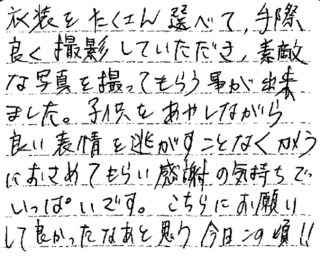 衣装をたくさん選べて、手際
良く撮影していただき、素敵
な写真を撮ってもらう事が出来
ました。子供をあやしながら
良い表情を逃がすことなくカメラ
におさめてもらい感謝の気持ちで
いっぱいです。こちらにお願い
して良かったなあと思う今日この頃!!